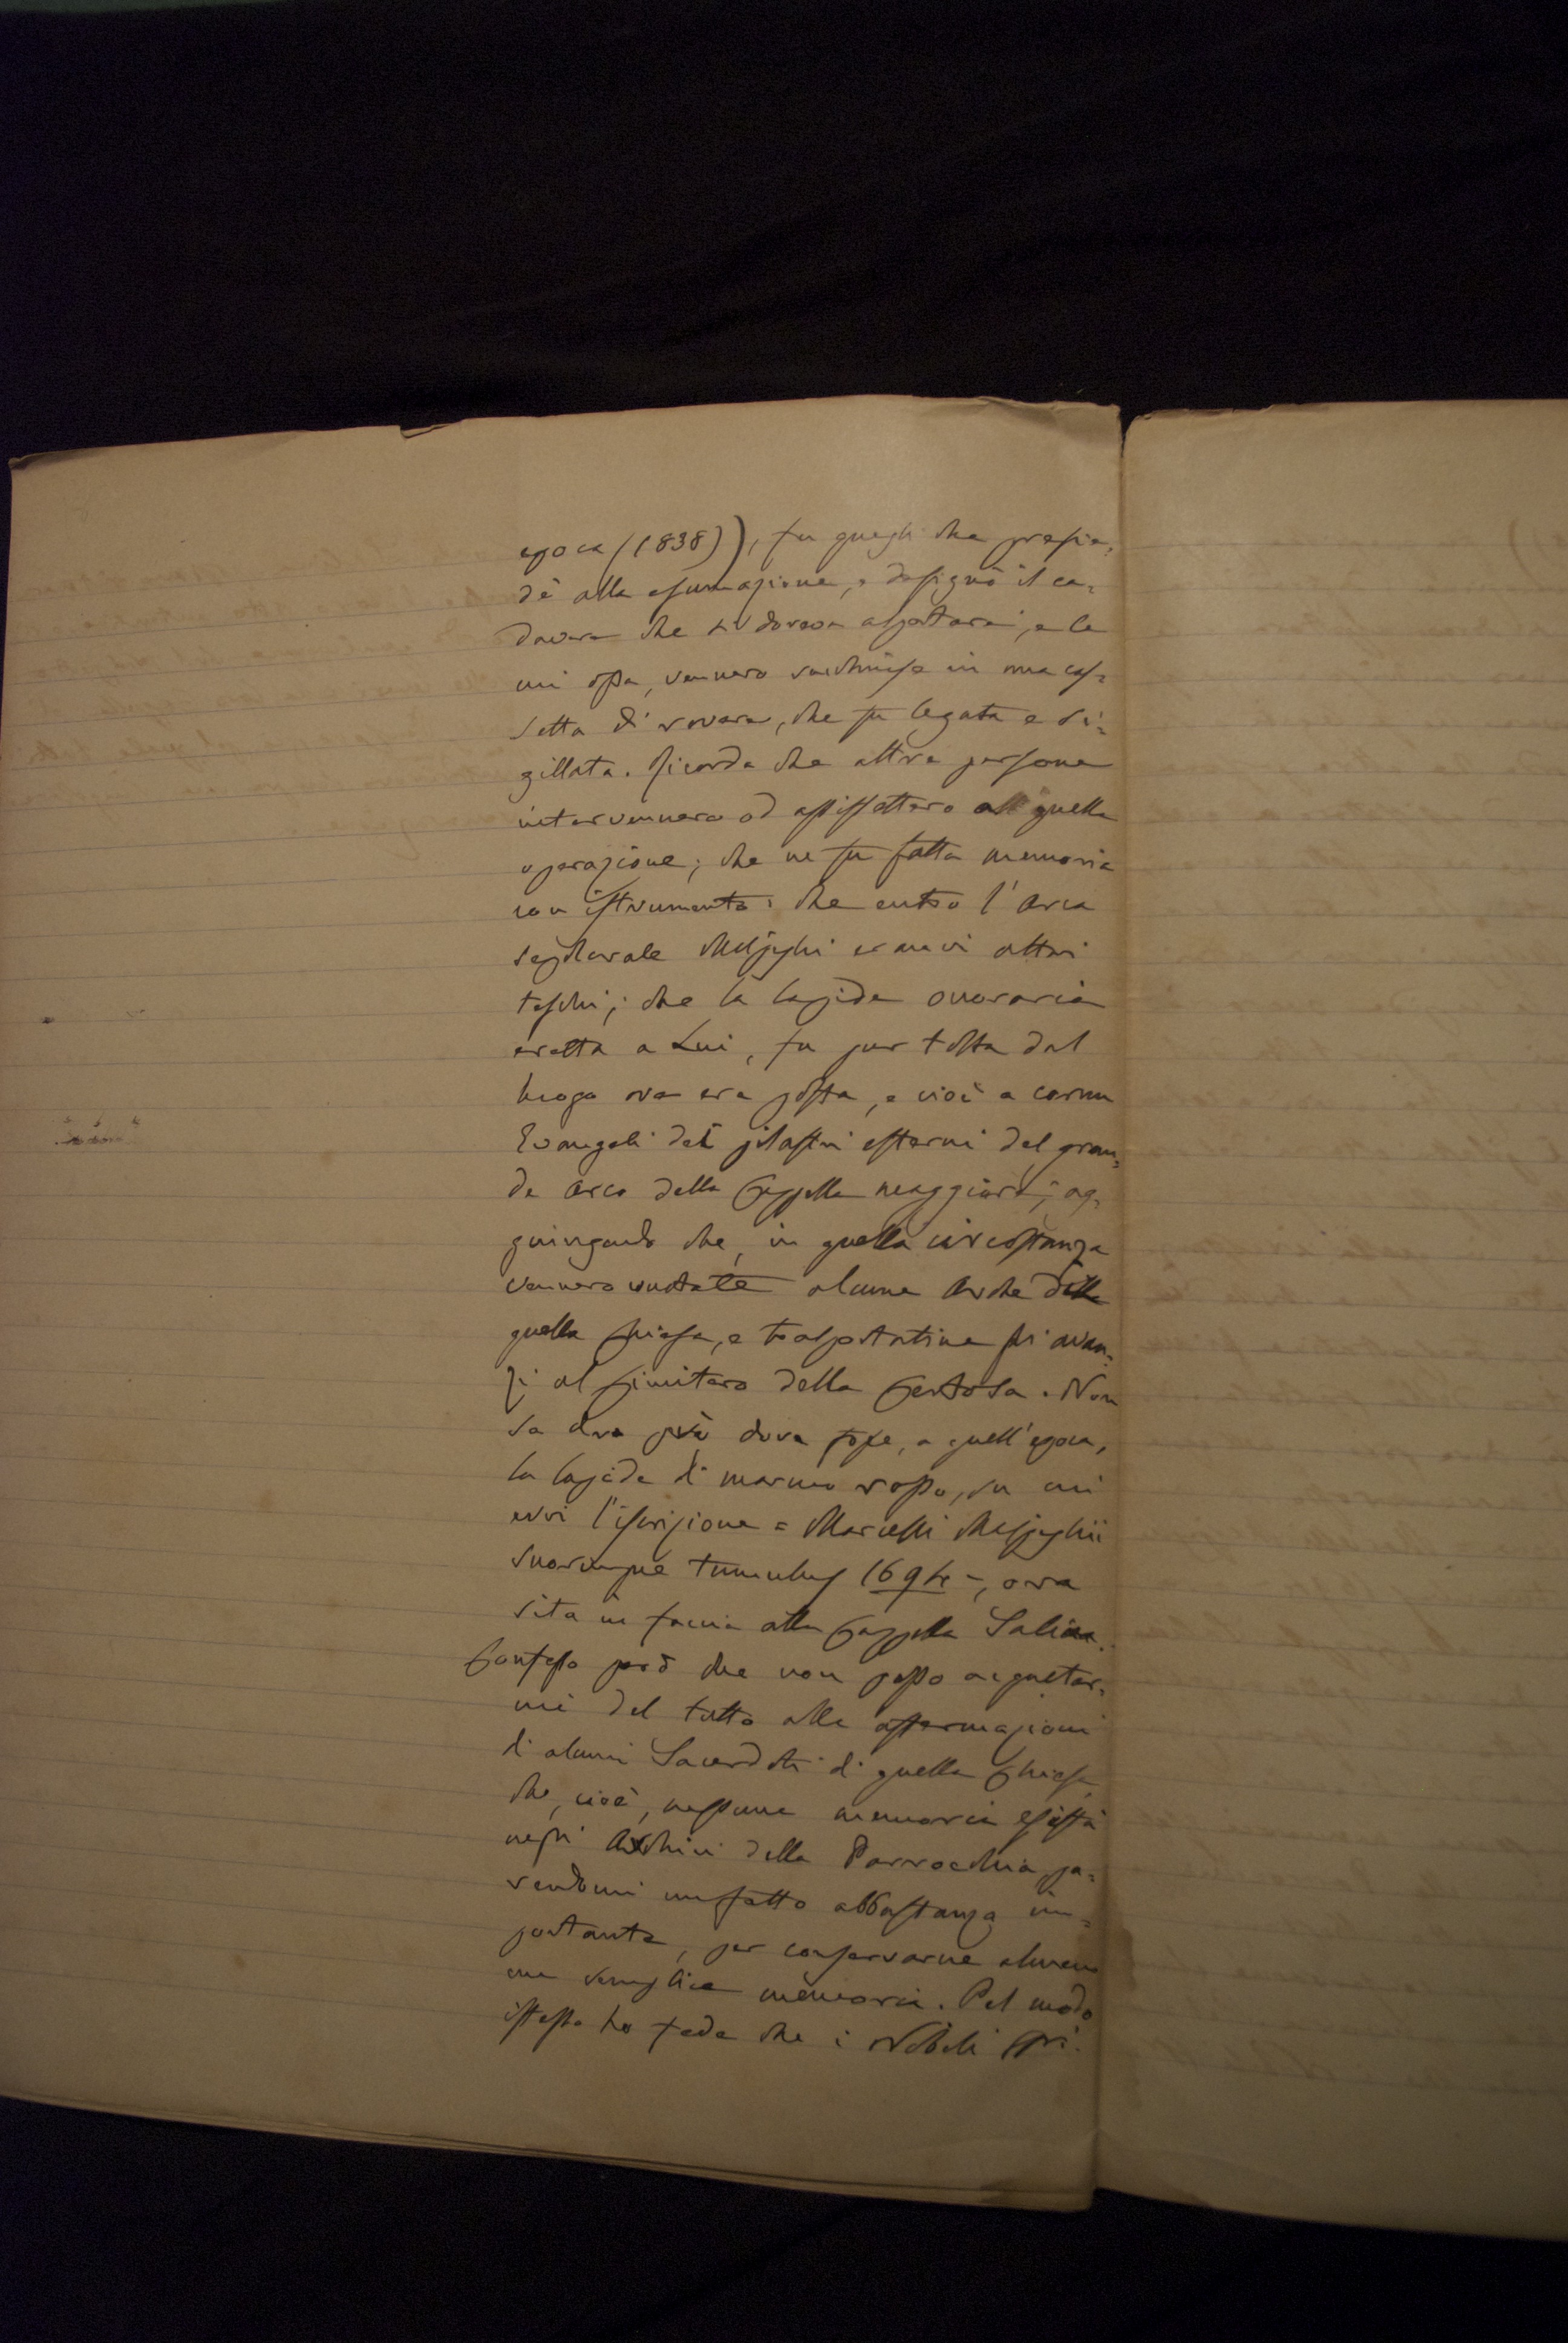 epoca (1838)), fu quegli che presie-
dè alla esumazione, e designò il ca-
davere che si doveva asportare, e le
cui ossa, vennero racchiuse in una cas-
setta di rovere, che fu legata e si-
gillata. Ricorda che altre persone
intervennero ed assistettero a quella
operazione; che ne fu fatta memoria
con istrumento: che entro l'Arca
sepolcrale Malpighi eranvi altri
teschi; che la lapide onoraria
eretta a Lui, fu pur tolta dal
luogo ove era posta, e cioè a cornu
Evangeli dei pilastri esterni del gran-
de Arco della Cappella maggiore; ag-
giungendo che, in quella circostanza
vennero vuotate alcune Arche di
quella Chiesa, e trasportatine gli avan-
zi al Cimitero della Certosa. Non
sa dire più dove fosse, a quell'epoca,
la lapide di marmo rosso, su cui
evvi l'iscrizione = Marcelli Malpighii
suorumque tumulus 1694 =, ora
sita in faccia alla Cappella Salina.
Confesso però che non posso acquetar-
mi del tutto alle affermazioni
di alcuni Sacerdoti di quella Chiesa,
che, cioè, nessuna memoria esista
negli Archivi della Parrocchia, pa-
rendomi un fatto abbastanza im-
portante, per conservarne almeno
una semplice memoria. Pel modo
istesso ho fede che i Nobili